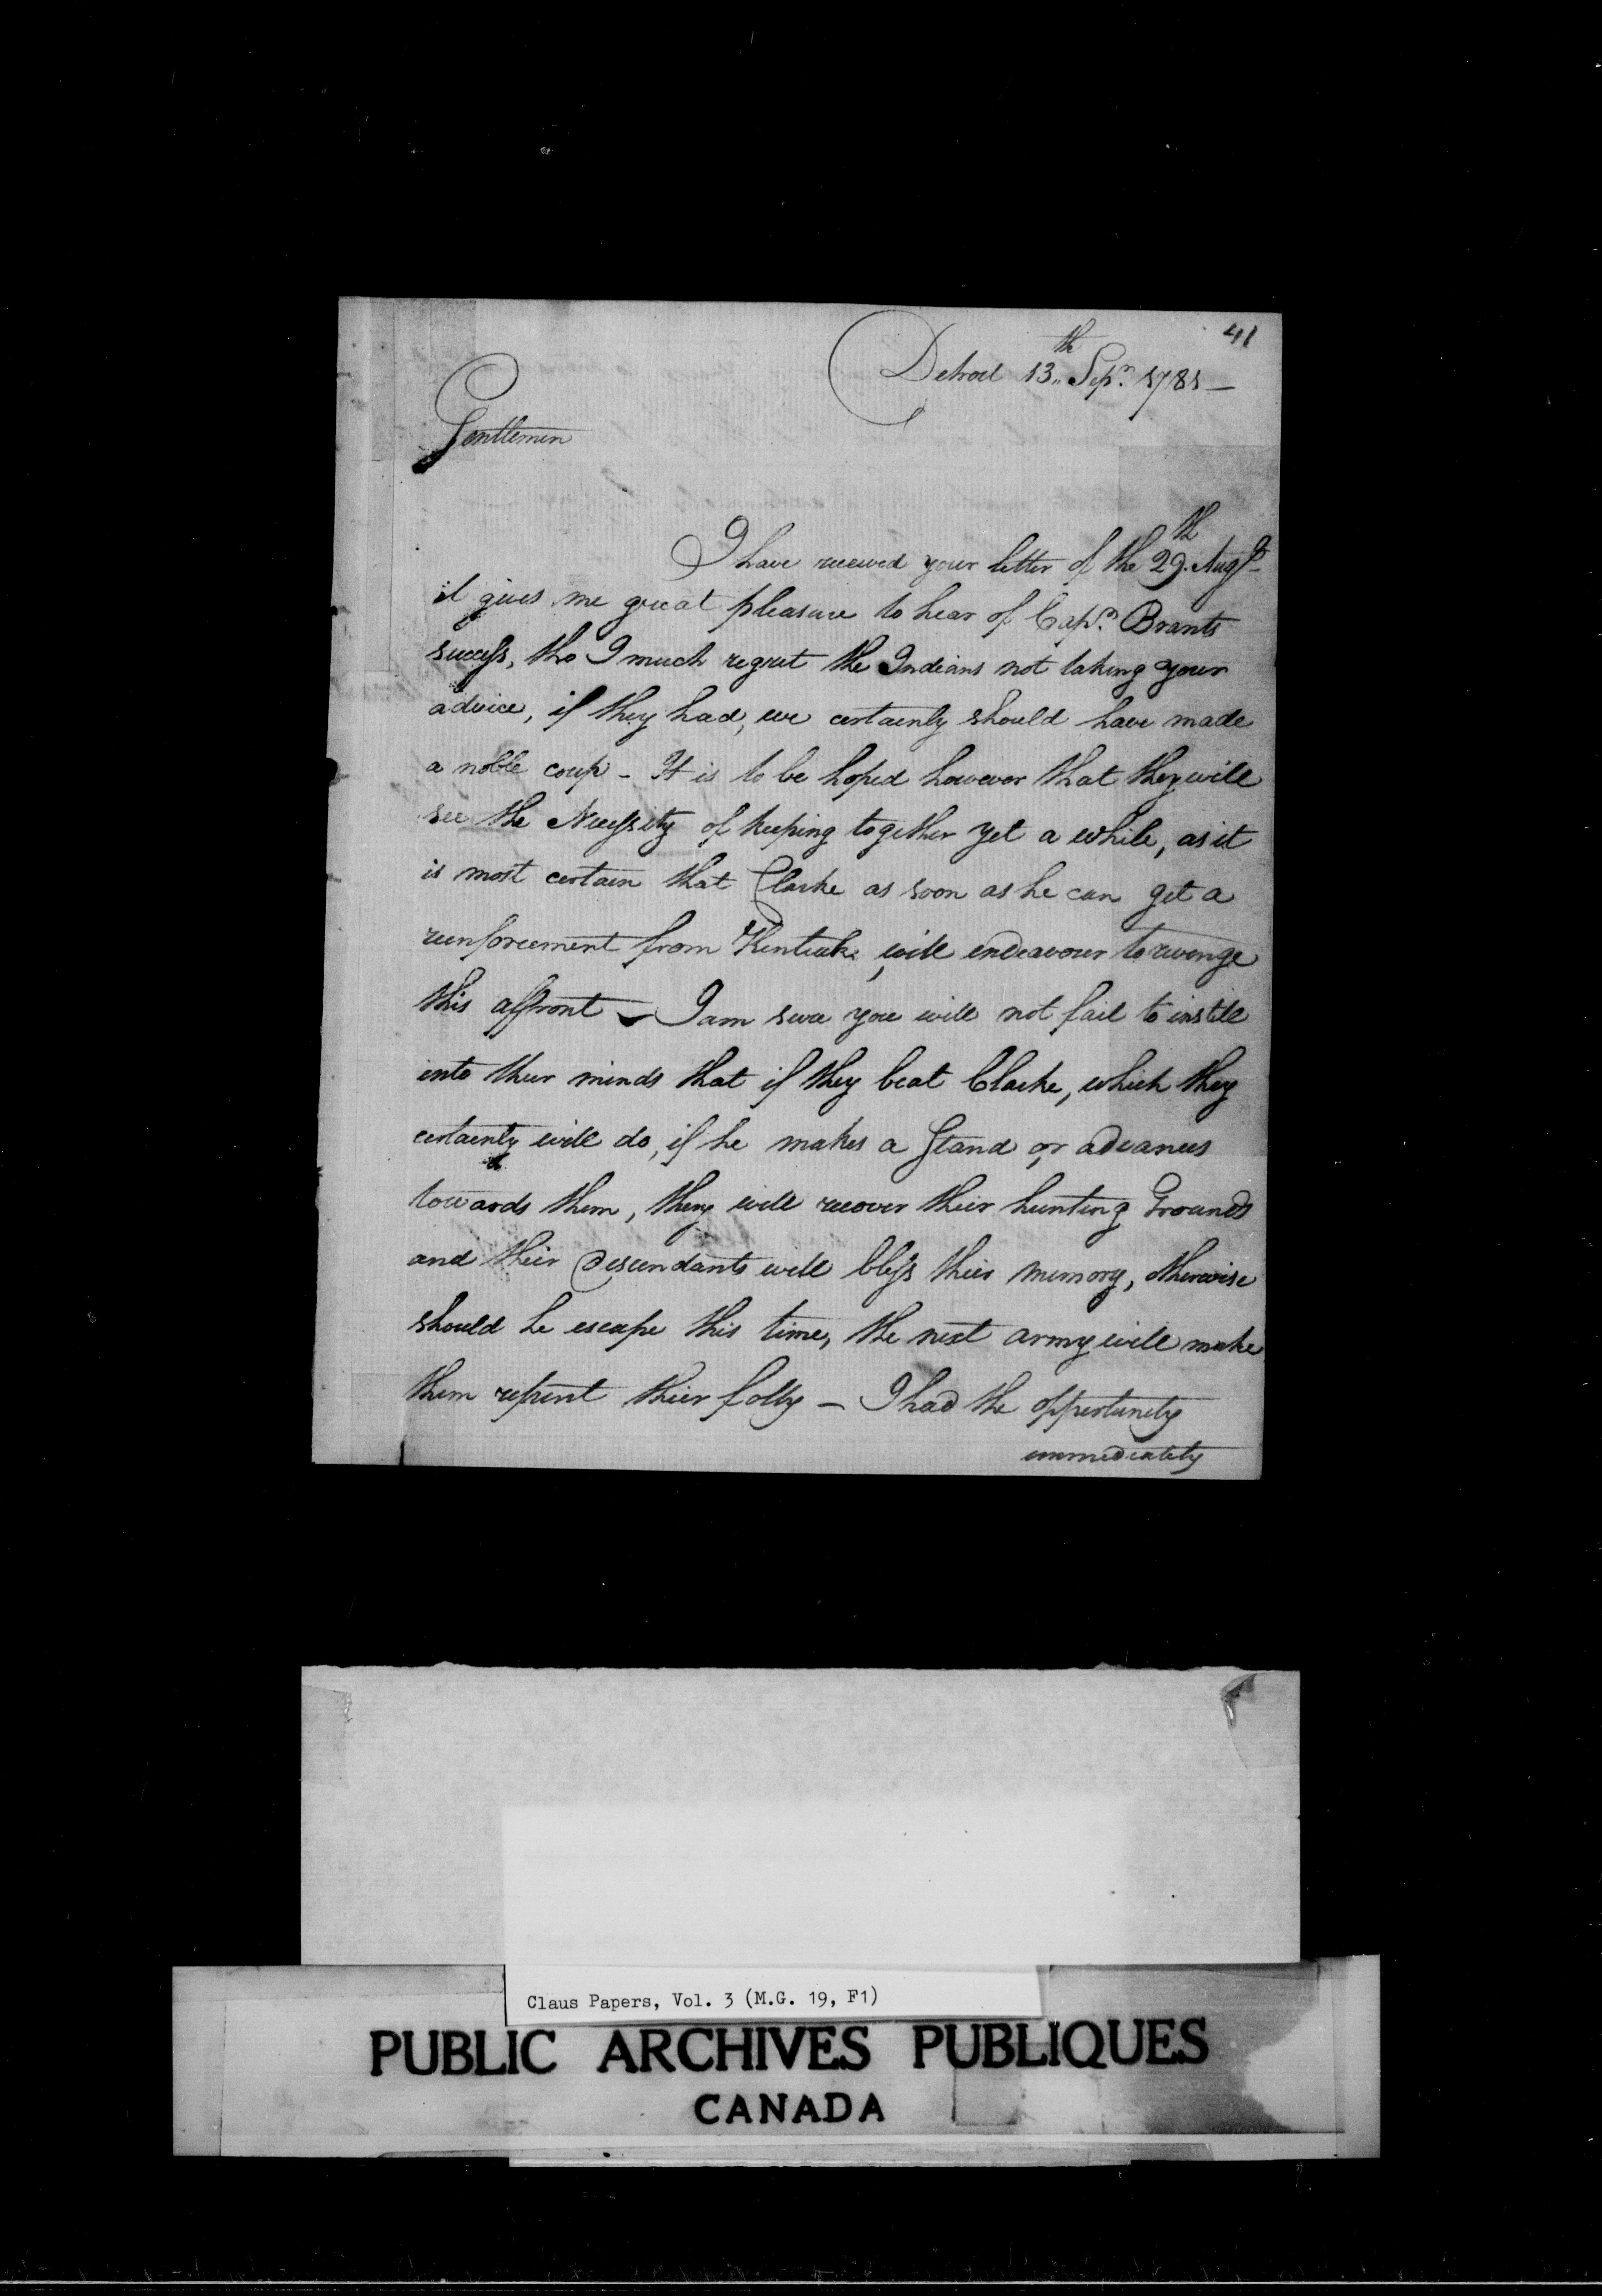 41
Detroit 13th Sepr. 1781 —
Gentlemen
I have received your letter of the 29th. Augst.
it gives me great pleasure to hear of Capn. Brants
success, tho I much regret the Indians not taking your
advice, if they had, we certainly should have made
a noble coup - It is to be hoped however that they will
see the Necessity of keeping together yet a while, as it
is most certain that Clarke as soon as he can get a
reenforcement from Kentuck, will endeavour to revenge
this affront — I am sure you will not fail to instill
into their minds that if they beat Clarke, which they
certainly will do, if he makes a Stand or advances
towards them, they will recover their hunting Grounds
and their Descendants will bless their memory, otherwise
should he escape this time, the next army will make
them repent their folly — I had the oppertunity
immediately
Claus Papers, Vol. 3 (M.G. 19, F1)
PUBLIC ARCHIVES PUBLIQUES
CANADA